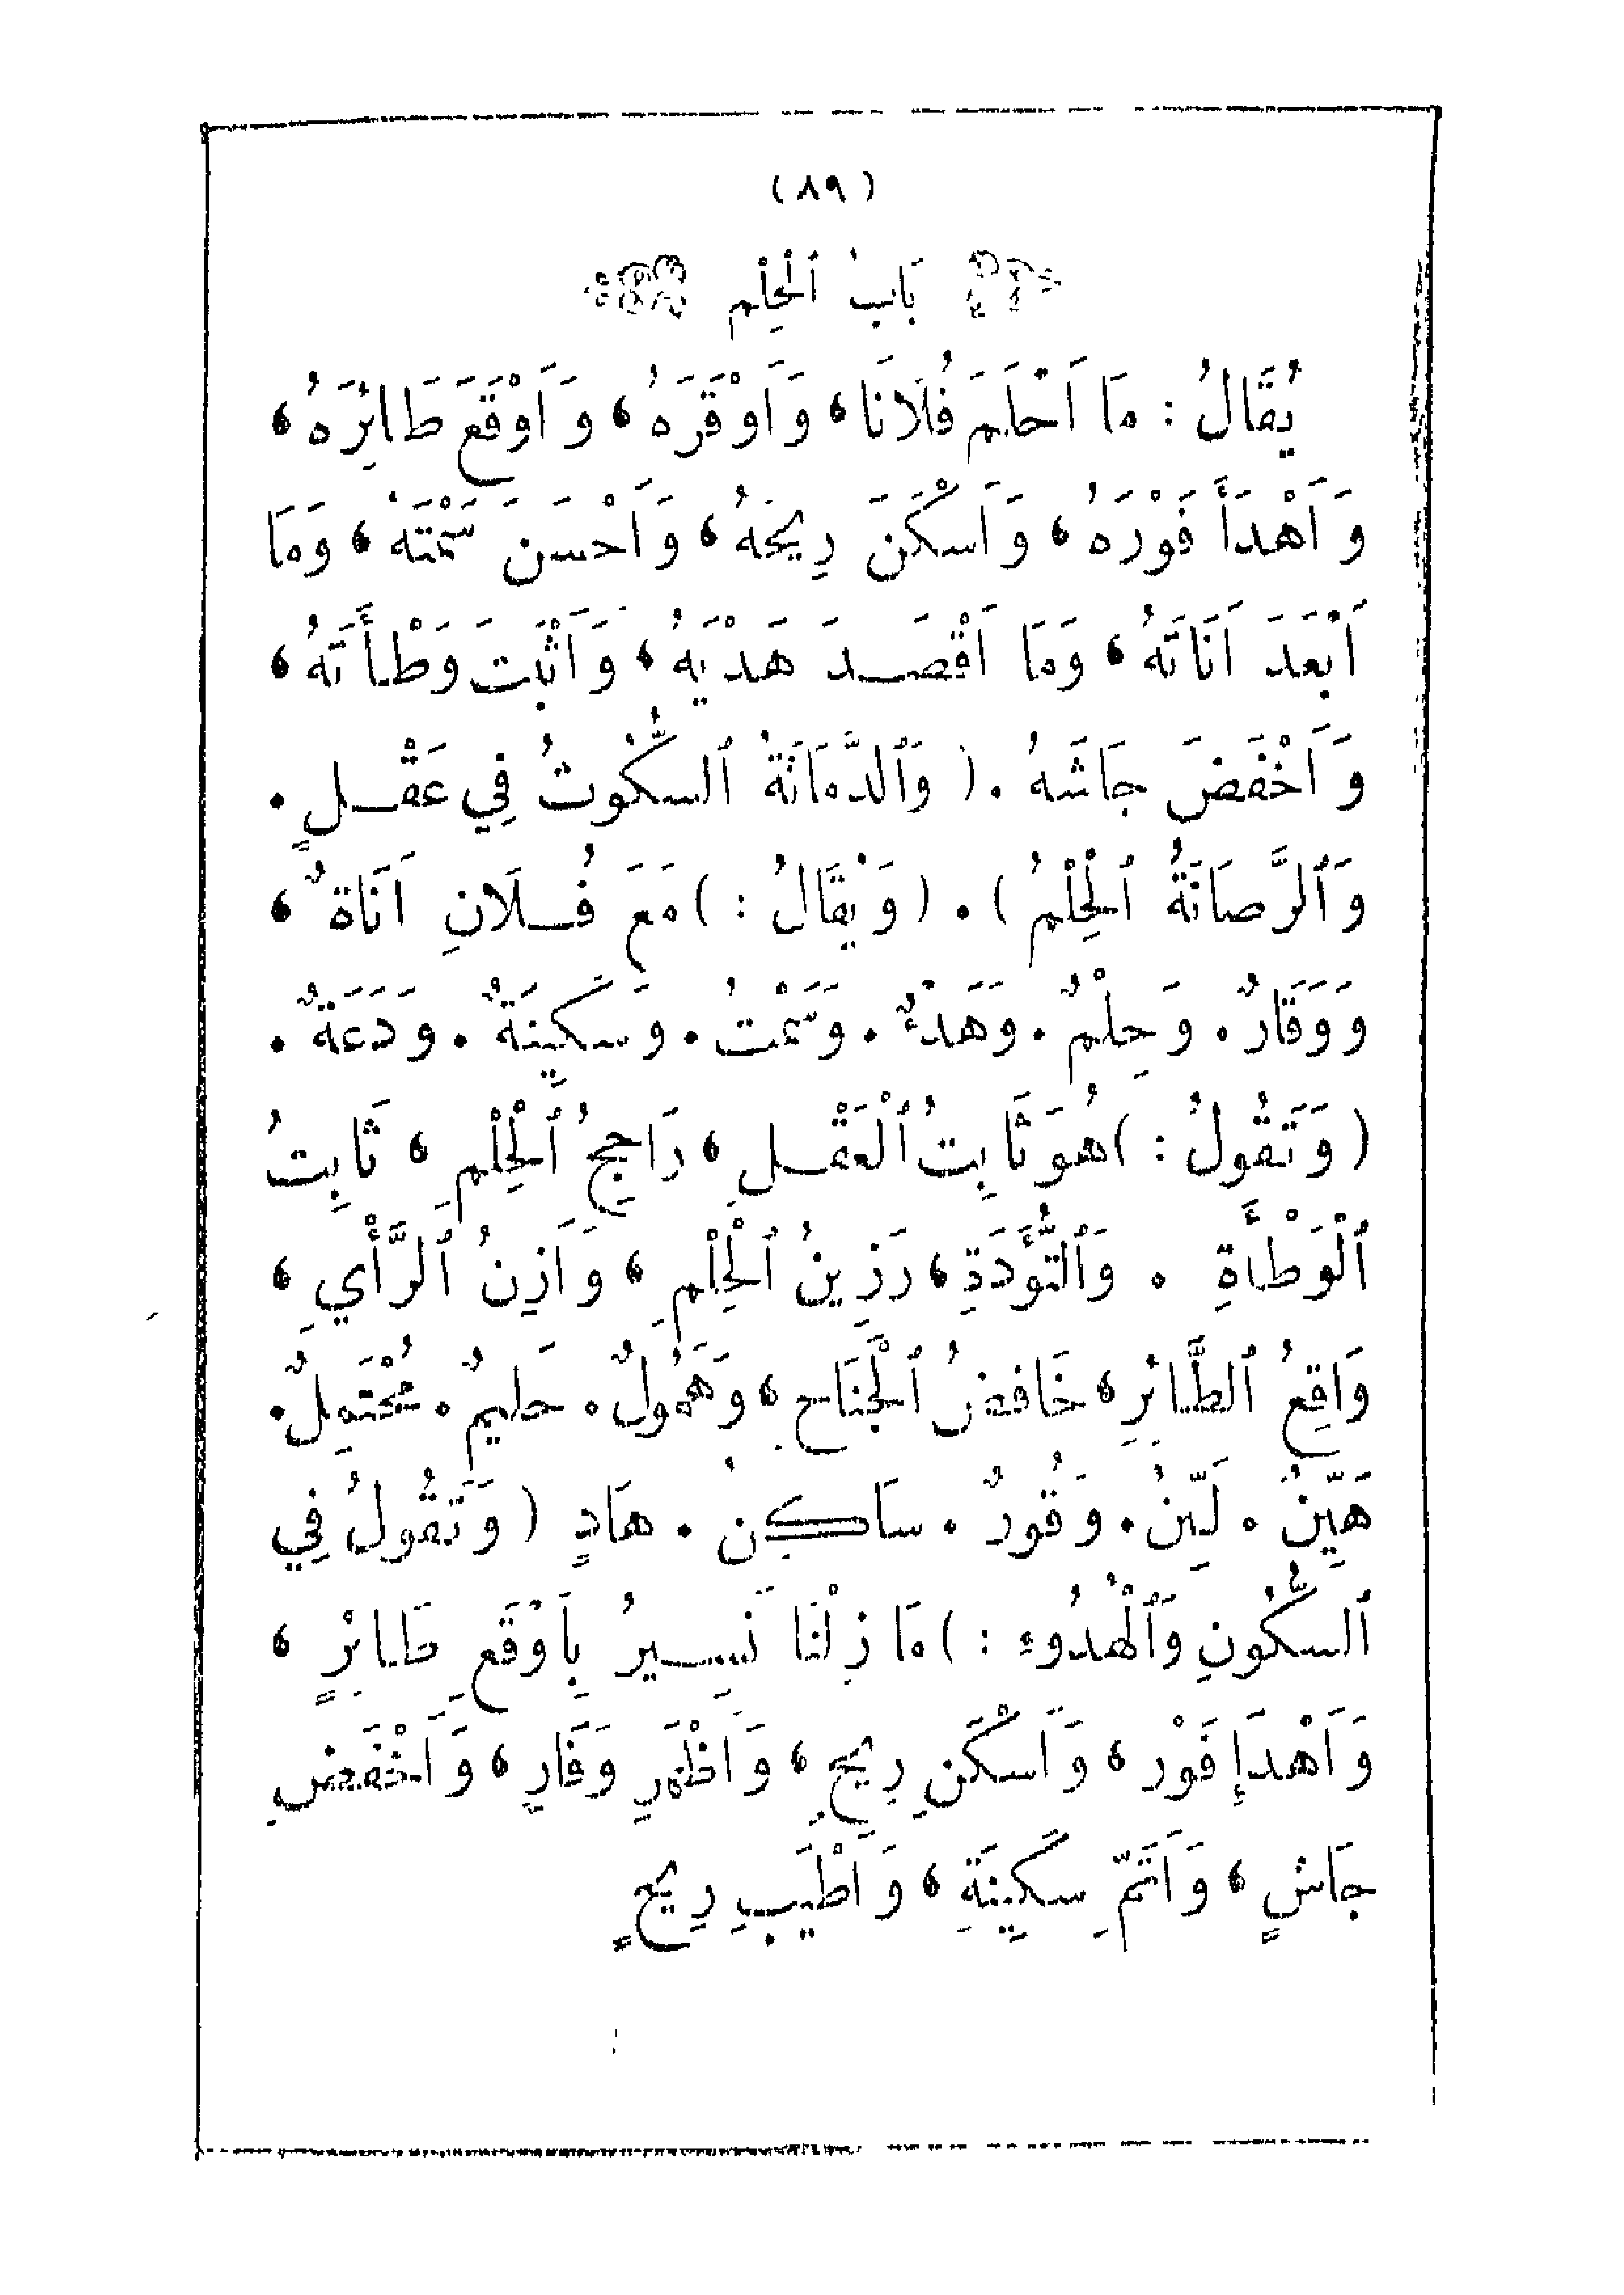 (٨٩)
بَابُ ٱلْحِلْمِ
يُقَالُ : مَا اَحْلَمَ فُلَانًا، وَاَوْقَرَهُ، وَاَوْقَعَ طَائِرَهُ،
وَاَهْدَأَ فَوْرَهُ، وَاَسْكَنَ رِيحَهُ، وَاَحْسَنَ سَمْتَهُ، وَمَا
اَبْعَدَ اَنَاتَهُ، وَمَا اَقْصَدَ هَدْيَهُ، وَاَثْبَتَ وَطْأَتَهُ،
وَاَخْفَضَ جَاشَهُ. ( وَٱلدَّمَاثَةُ ٱلسُّكُوتُ فِي عَقْلٍ.
وَٱلرَّصَانَةُ ٱلْحِلْمُ ). ( وَيُقَالُ : ) مَعَ فُلَانٍ اَنَاةٌ،
وَوَقَارٌ. وَحِلْمٌ. وَهَدْءٌ. وَسَمْتٌ. وَسَكِينَةٌ. وَدَعَةٌ.
( وَتَقُولُ : ) هُوَ ثَابِتُ ٱلْعَقْلِ، رَاجِحُ ٱلْحِلْمِ، ثَابِتُ
ٱلْوَطْأَةِ . وَٱلتُّؤَدَةِ، رَزِينُ ٱلْحِلْمِ، وَازِنُ ٱلرَّأْيِ،
وَاقِعُ ٱلطَّائِرِ، خَافِضُ ٱلْجَنَاحِ، وَحَمُولٌ. حَلِيمٌ. مُحْتَمِلٌ.
هَيِّنٌ. لَيِّنٌ. وَقُورٌ. سَاكِنٌ. هَادٍ ( وَتَقُولُ فِي
ٱلسُّكُونِ وَٱلْهُدُوءِ : ) مَا زِلْنَا نَسِيرُ بِاَوْقَعِ طَائِرٍ،
وَاَهْدَإِ فَوْرٍ، وَاَسْكَنِ رِيحٍ، وَاَظْهَرِ وَقَارٍ، وَاَخْفَضِ
جَاشٍ، وَاَتَمِّ سَكِينَةٍ، وَاَطْيَبِ رِيحٍ